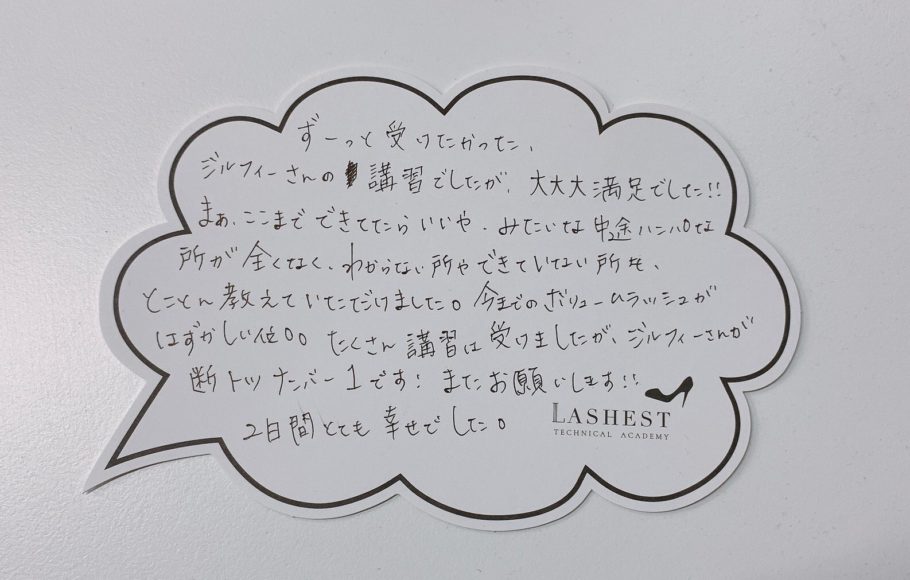 ずーっと受けたかった、
ジルフィーさんの講習でしたが、大大大満足でした!!
まぁ、ここまでできてたらいいや、みたいな中途ハンパな
所が全くなく、わからない所やできていない所を、
とことん教えていただけました。今までのボリュームラッシュが
はずかしい位。。たくさん講習は受けましたが、ジルフィーさんが
断トツナンバー1です! またお願いします!!
2日間とても幸せでした。
LASHEST
TECHNICAL ACADEMY